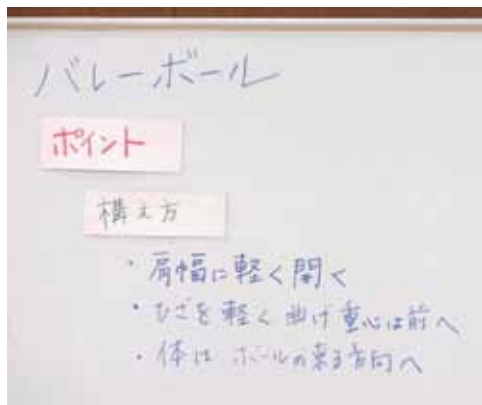 バレーボール
ポイント
構え方
・肩幅に軽く開く
・ひざを軽く曲げ重心は前へ
・体はボールの来る方向へ